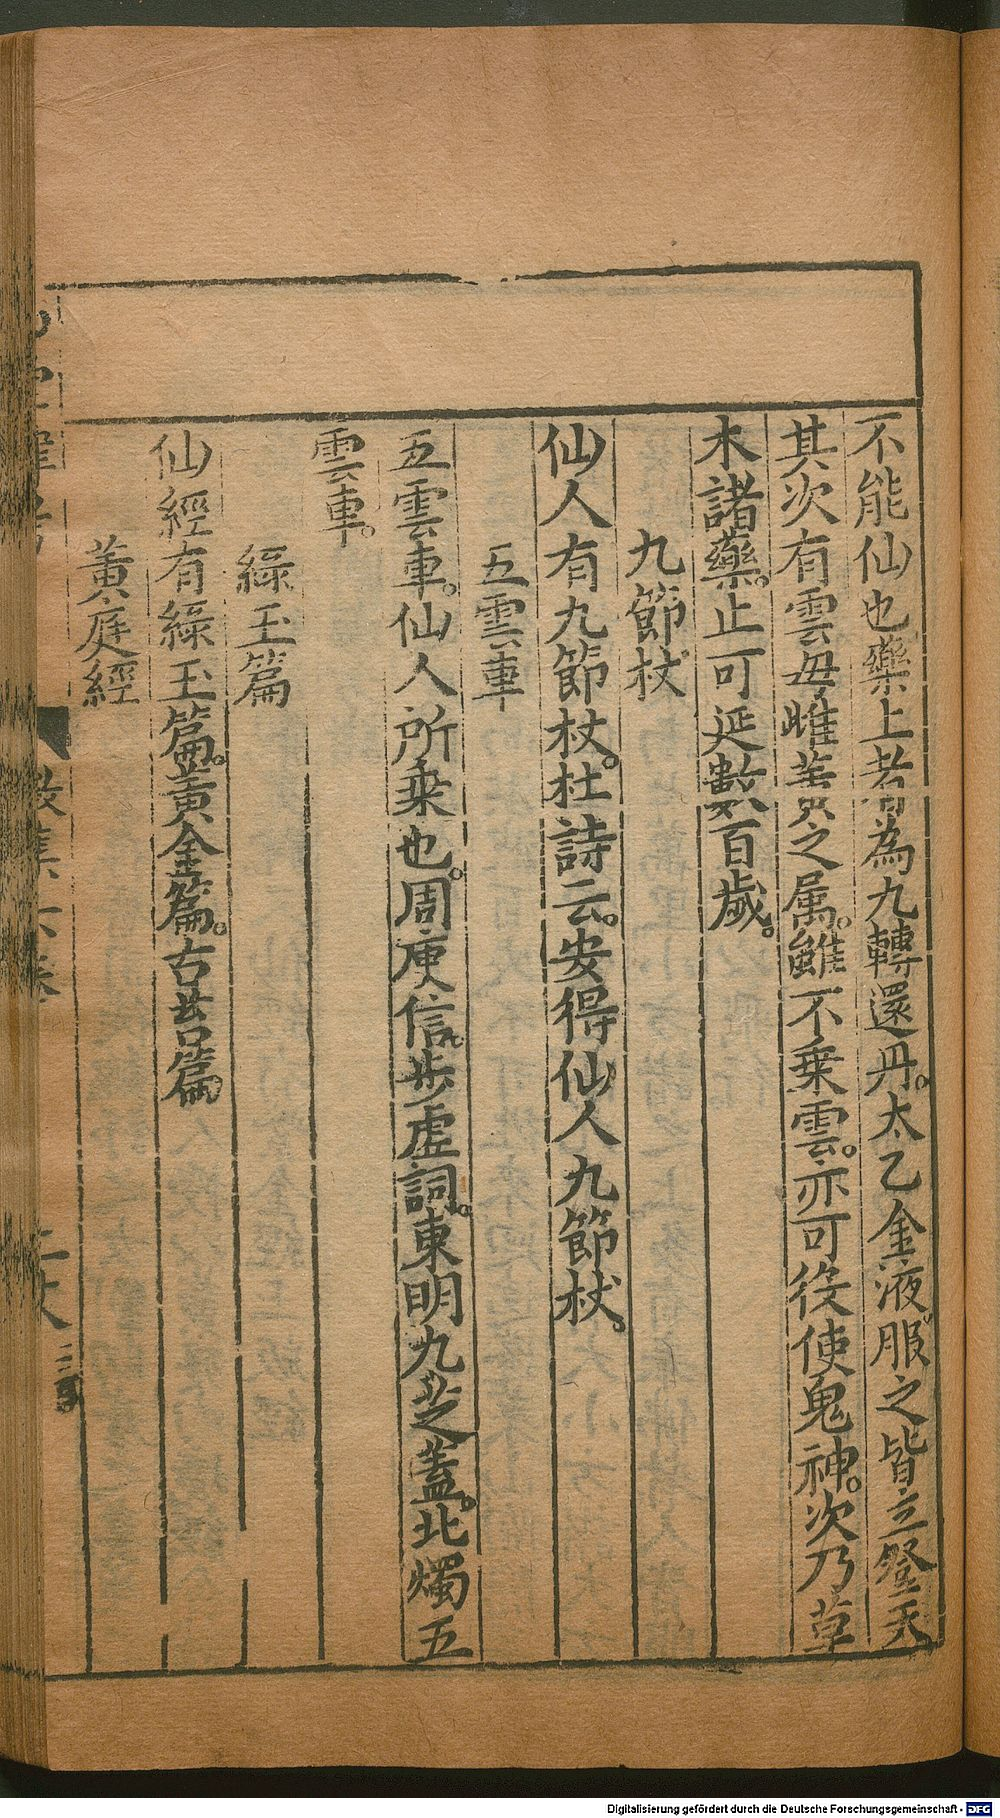 不能仙也藥上者為九轉還丹。太乙金液。服之皆立登天
其次有雲母雌黃之属。雖不乗雲。亦可役使鬼神。次乃草
木諸藥。止可延數百歲。
九節杖
仙人有九節杖。杜詩云。安得仙人九節杖。
五雲車
五雲車。仙人所乗也。周庾信步虛詞。東明九芝蓋。北燭五
雲車。
綠玉篇
仙經有綠玉篇。黃金篇。古苔篇
黃庭經
數集六卷
Digitalisierung gefördert durch die Deutsche Forschungsgemeinschaft - DFG